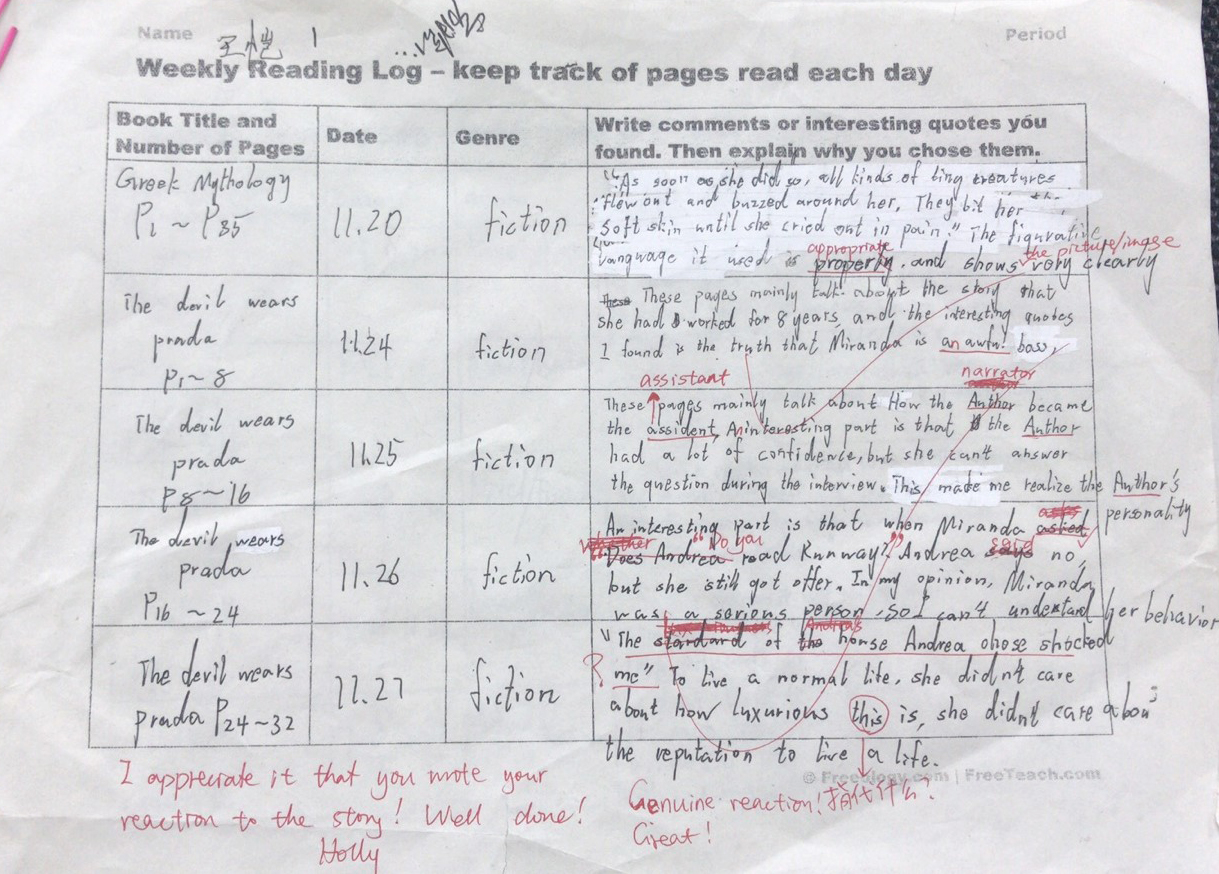 Name
Period
Weekly Reading Log – keep track of pages read each day
Book Title and Number of Pages
Date
Genre
Write comments or interesting quotes you
found. Then explain why you chose them.
Greek Mythology
P1 ~ P35
11.20
fiction
"As soon as she did so, all kinds of tiny creatures
flew out and buzzed around her. They bit her
soft skin until she cried out in pain." The figurative
language it used is properly. and shows very clearly
appropriate
the picture/image
The devil wears
prada
P1~8
11.24
fiction
These These pages mainly talk about the story that
she had worked for 8 years, and the interesting quotes
I found is the truth that Miranda is an awful boss,
The devil wears
prada
P8~16
11.25
fiction
assistant
narrator
These pages mainly talk about How the Author became
the assident, An interesting part is that the Author
had a lot of confidence, but she can't answer
the question during the interview. This made me realize the Author's
personality
The devil wears
prada
P16 ~24
11.26
fiction
An interesting part is that when Miranda asked
whether "Do you said
"Does Andrea read Runway?" Andrea says no,
but she still got offer. In my opinion, Miranda
was a serious person, so I can't understand her behavior
The devil wears
prada P24~32
11.27
fiction
"The standard of the house Andrea chose shocked
? me" To live a normal life, she didn't care
about how luxurious this is, she didn't care abou
the reputation to live a life.
© Freeology.com | FreeTeach.com
I appreciate it that you wrote your
reaction to the story! Well done!
Holly
Genuine reaction! 指代什么?
Great!